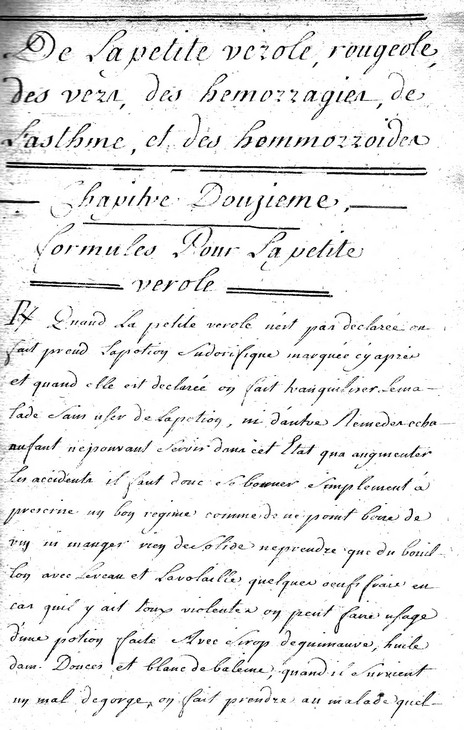 De La petite verole, rougeole,
des vers, des hemorragies, de
Lasthme, et des hommorroides
Chapitre Douzieme,
formules Pour La petite
verole
Rx Quand La petite verole n'est pas declarée on
fait prend Lapotion Sudorifique marquée cy apres
et quand elle est declarée on fait tranquiliser Lema-
lade Sans user de Lapotion, ni d'autre Remedes echa-
aufant nepouvant Servir dans cet Etat qua augmenter
Les accidents il faut donc Se borner Simplement á
prescrire un bon regime comme de ne point boire de
vin ni manger rien de Solide neprendre que du bouil-
lon avec Leveau et Lavolaille quelques oeufs frais en
cas quil y ait toux violente on peut faire usage
d'une potion faite Avec Sirop deguimauve, huile
dam. Douces et blanc de baleine, quand il Survient
un mal degorge, on fait prendre au malade quel-